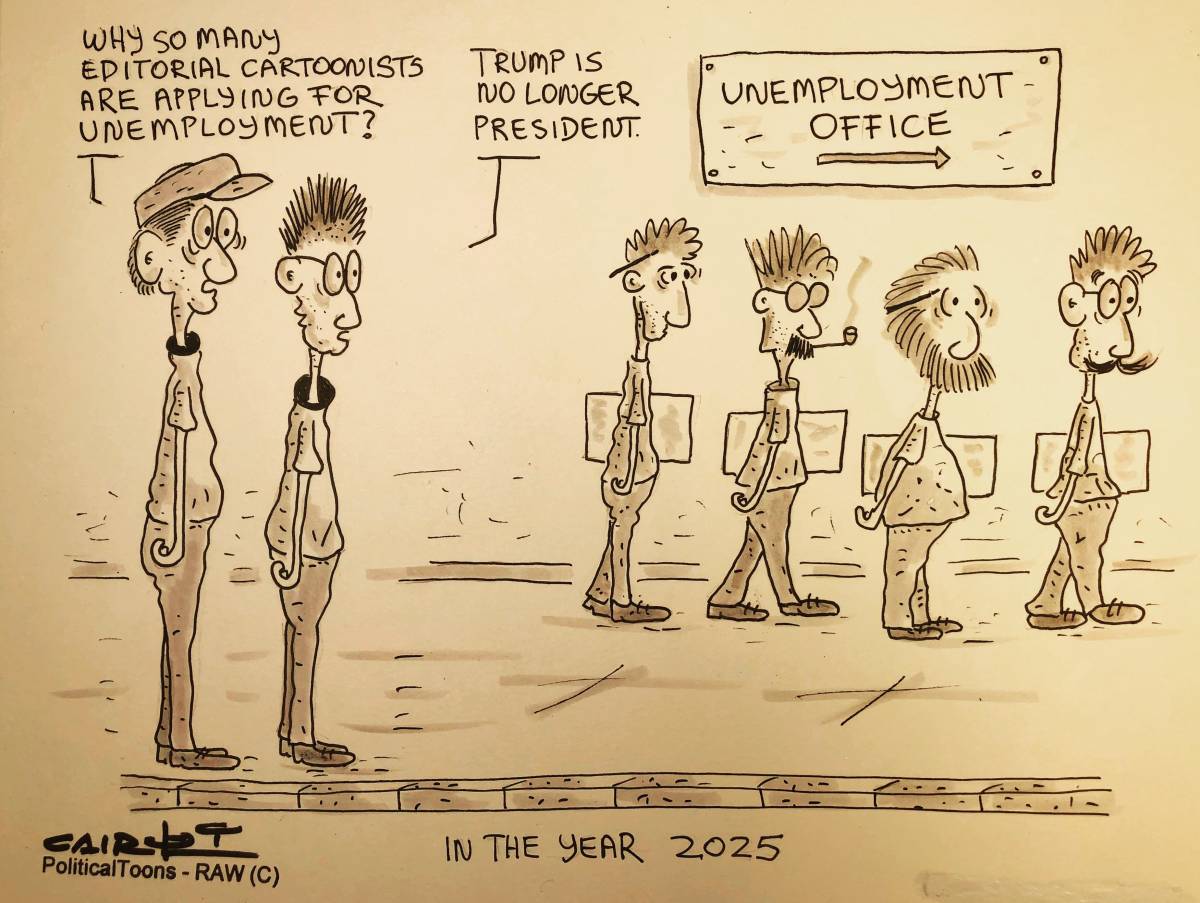 WHY SO MANY
EDITORIAL CARTOONISTS
ARE APPLYING FOR
UNEMPLOYMENT?
TRUMP IS
NO LONGER
PRESIDENT.
UNEMPLOYMENT
OFFICE
IN THE YEAR 2025
PoliticalToons - RAW (C)